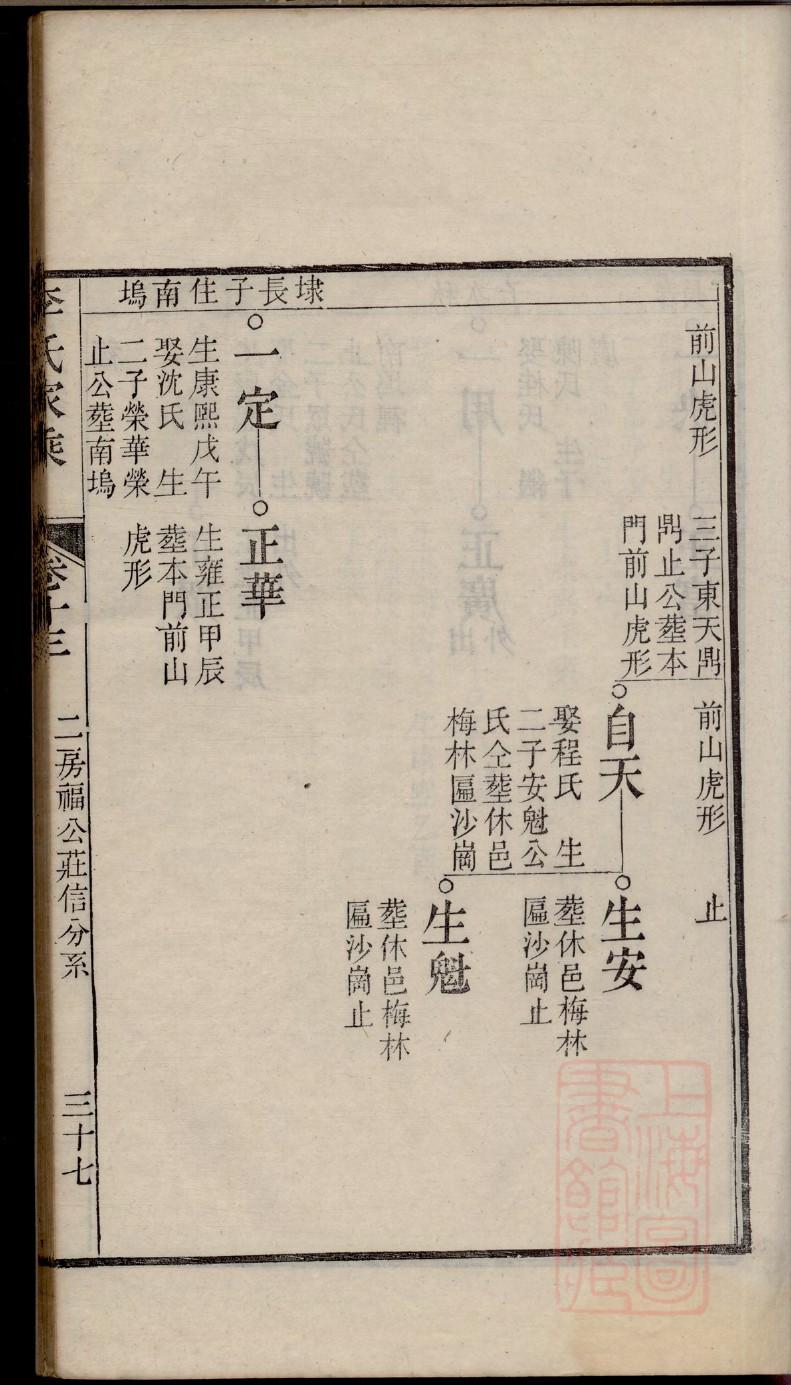 前山虎形
三子東天鼎
鼎止公塟本
門前山虎形
前山虎形 止
自天
娶程氏 生
二子安魁公
氏仝塟休邑
梅林匾沙崗
生安
塟休邑梅林
匾沙崗止
生魁
塟休邑梅林
匾沙崗止
埭長子住南塢
一定
生康熙戊午
娶沈氏 生
二子榮華榮
止公塟南塢
正華
生雍正甲辰
塟本門前山
虎形
李氏家乘
卷十三
二房福公莊信分系
三十七
上海圖
書館藏